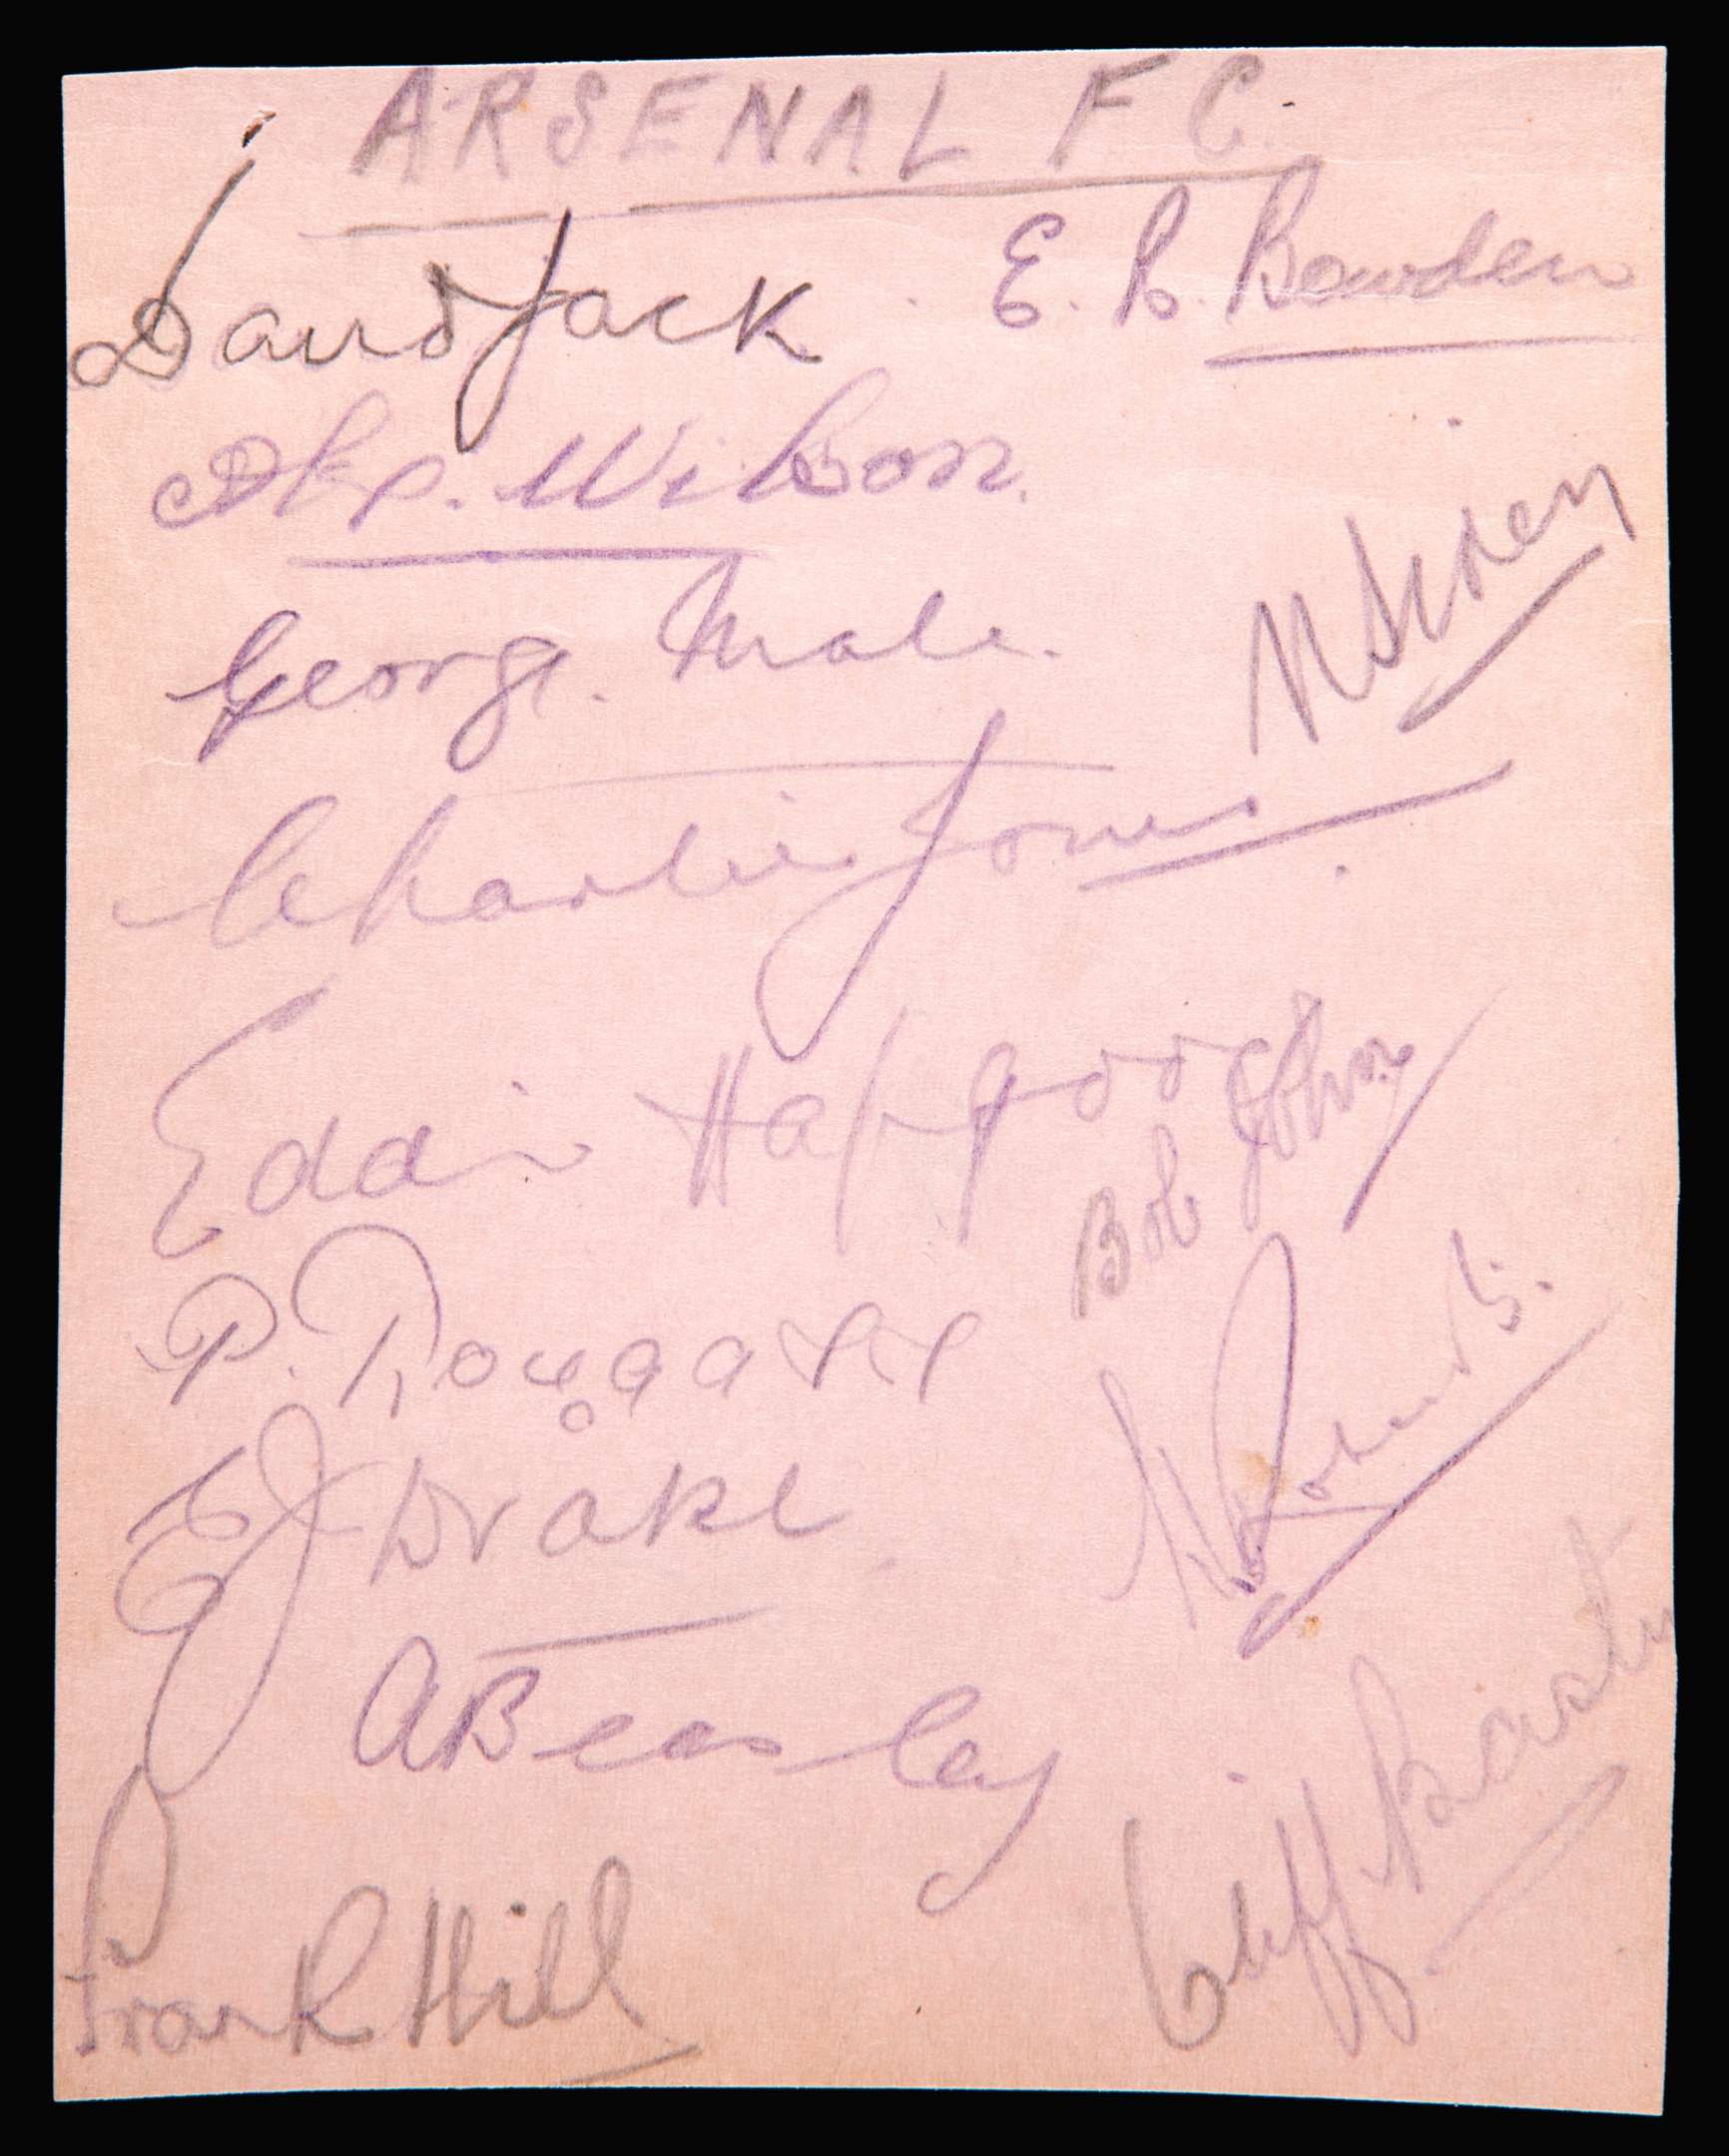 ARSENAL F C.
David Jack
E. R. Bowden
Alex. Wilson.
N Sidey
George. Male.
Charlie Jones
Eddie Hapgood
Bob John
P. Dougall
H Roberts.
E J Drake
A Beasley
Cliff Bastin
Frank Hill